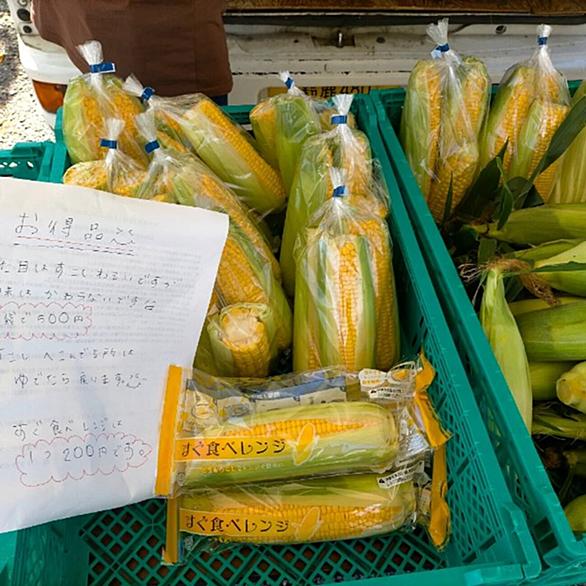 鈴鹿 480
お得品
た目はすこしわるいですが
味はかわらないです
袋で500円
こし へこんだ所は
ゆでたら戻ります。
すぐ食べレンジは
1つ200円です。
すぐ食べレンジ
すぐ食べレンジ